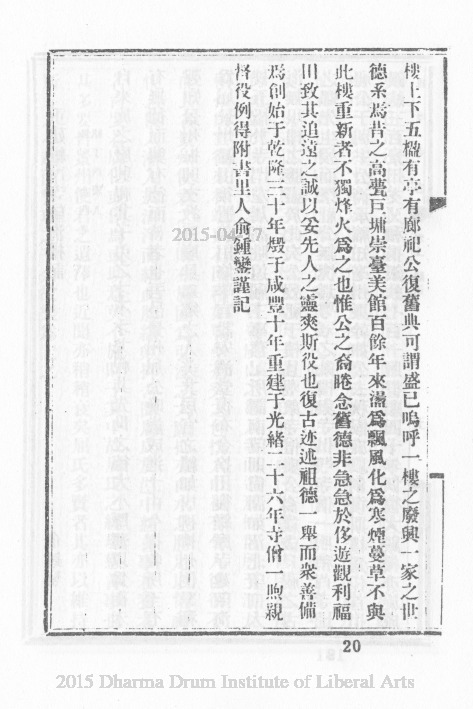 樓上下五楹有亭有廊祀公復舊典可謂盛已嗚呼一樓之廢興一家之世
德系焉昔之高甍巨墉崇臺美館百餘年來蕩爲飄風化爲寒煙蔓草不與
此樓重新者不獨烽火爲之也惟公之裔睠念舊德非急急於侈遊觀利福
田致其追遠之誠以妥先人之靈爽斯役也復古迹述祖德一舉而衆善備
焉創始于乾隆三十年燬于咸豐十年重建于光緒二十六年寺僧一煦親
督役例得附書里人俞鍾鑾謹記
2015-04-17
20
2015 Dharma Drum Institute of Liberal Arts